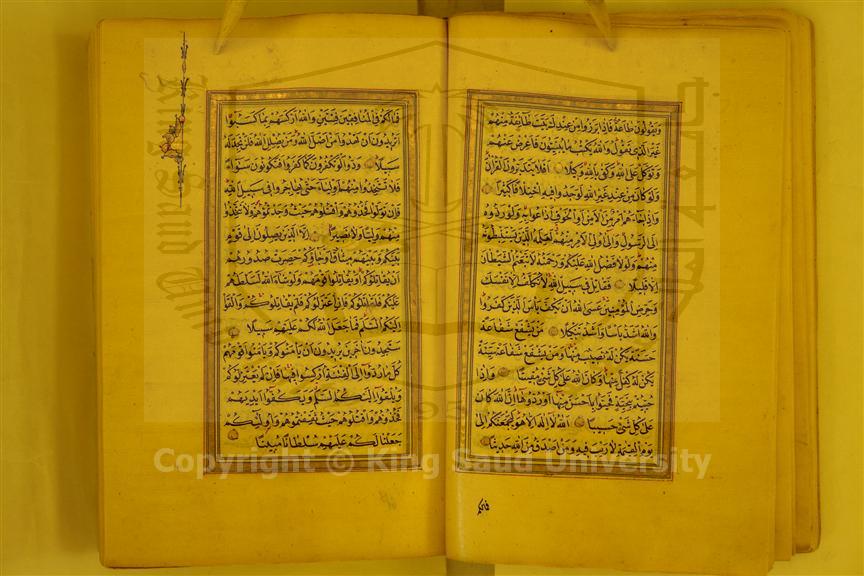 ويقولون طاعة فاذا برزوا من عندك بيت طائفة منهم
غير الذي تقول والله يكتب ما يبيتون فاعرض عنهم
وتوكل على الله وكفى بالله وكيلا افلا يتدبرون القرآن
ولو كان من عند غير الله لوجدوا فيه اختلافا كثيرا
واذا جاءهم امر من الامن او الخوف اذاعوا به ولو ردوه
الى الرسول والى اولي الامر منهم لعلمه الذين يستنبطونه
منهم ولولا فضل الله عليكم ورحمته لاتبعتم الشيطان
الا قليلا فقاتل في سبيل الله لا تكلف الا نفسك
وحرض المؤمنين عسى الله ان يكف باس الذين كفروا
والله اشد باسا واشد تنكيلا من يشفع شفاعة
حسنة يكن له نصيب منها ومن يشفع شفاعة سيئة
يكن له كفل منها وكان الله على كل شئ مقيتا واذا
حييتم بتحية فحيوا باحسن منها او ردوها ان الله كان
على كل شئ حسيبا الله لا اله الا هو ليجمعنكم الى
يوم القيمة لا ريب فيه ومن اصدق من الله حديثا
فمالكم
فمالكم في المنافقين فئتين والله اركسهم بما كسبوا
اتريدون ان تهدوا من اضل الله ومن يضلل الله فلن تجد له
سبيلا ودوا لو تكفرون كما كفروا فتكونون سواء
فلا تتخذوا منهم اولياء حتى يهاجروا في سبيل الله
فان تولوا فخذوهم واقتلوهم حيث وجدتموهم ولا تتخذوا
منهم وليا ولا نصيرا الا الذين يصلون الى قوم
بينكم وبينهم ميثاق او جاؤكم حصرت صدورهم
ان يقاتلوكم او يقاتلوا قومهم ولو شاء الله لسلطهم
عليكم فلقاتلوكم فان اعتزلوكم فلم يقاتلوكم والقوا
اليكم السلم فما جعل الله لكم عليهم سبيلا
ستجدون آخرين يريدون ان يامنوكم ويامنوا قومهم
كل ما ردوا الى الفتنة اركسوا فيها فان لم يعتزلوكم
ويلقوا اليكم السلم ويكفوا ايديهم
فخذوهم واقتلوهم حيث ثقفتموهم واولئكم
جعلنا لكم عليهم سلطانا مبينا
Copyright © King Saud University